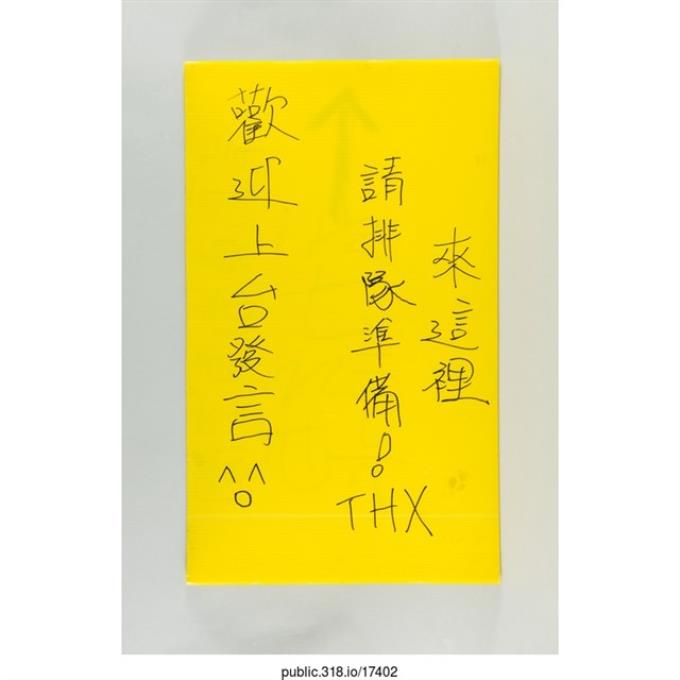 來這裡
請排隊準備!
THX
歡迎上台發言
^o^
public.318.io/17402